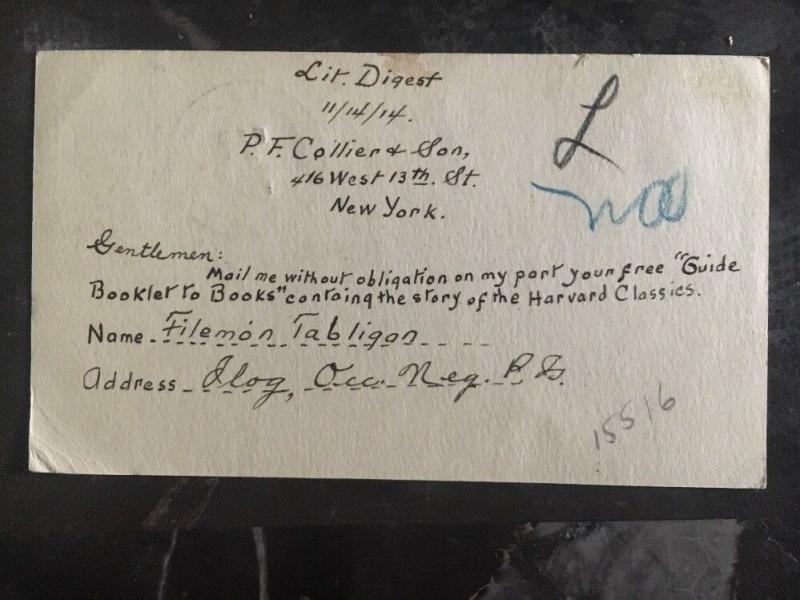 Lit. Digest
11/14/14.
P. F. Collier & Son,
416 West 13th. St.
New York.
L
Gentlemen:
Mail me without obligation on my part your free "Guide
Booklet to Books" containg the story of the Harvard Classics.
Name - Filemón Tabligan
Address - Ilog, Occ. Neg. P. Is.
15516